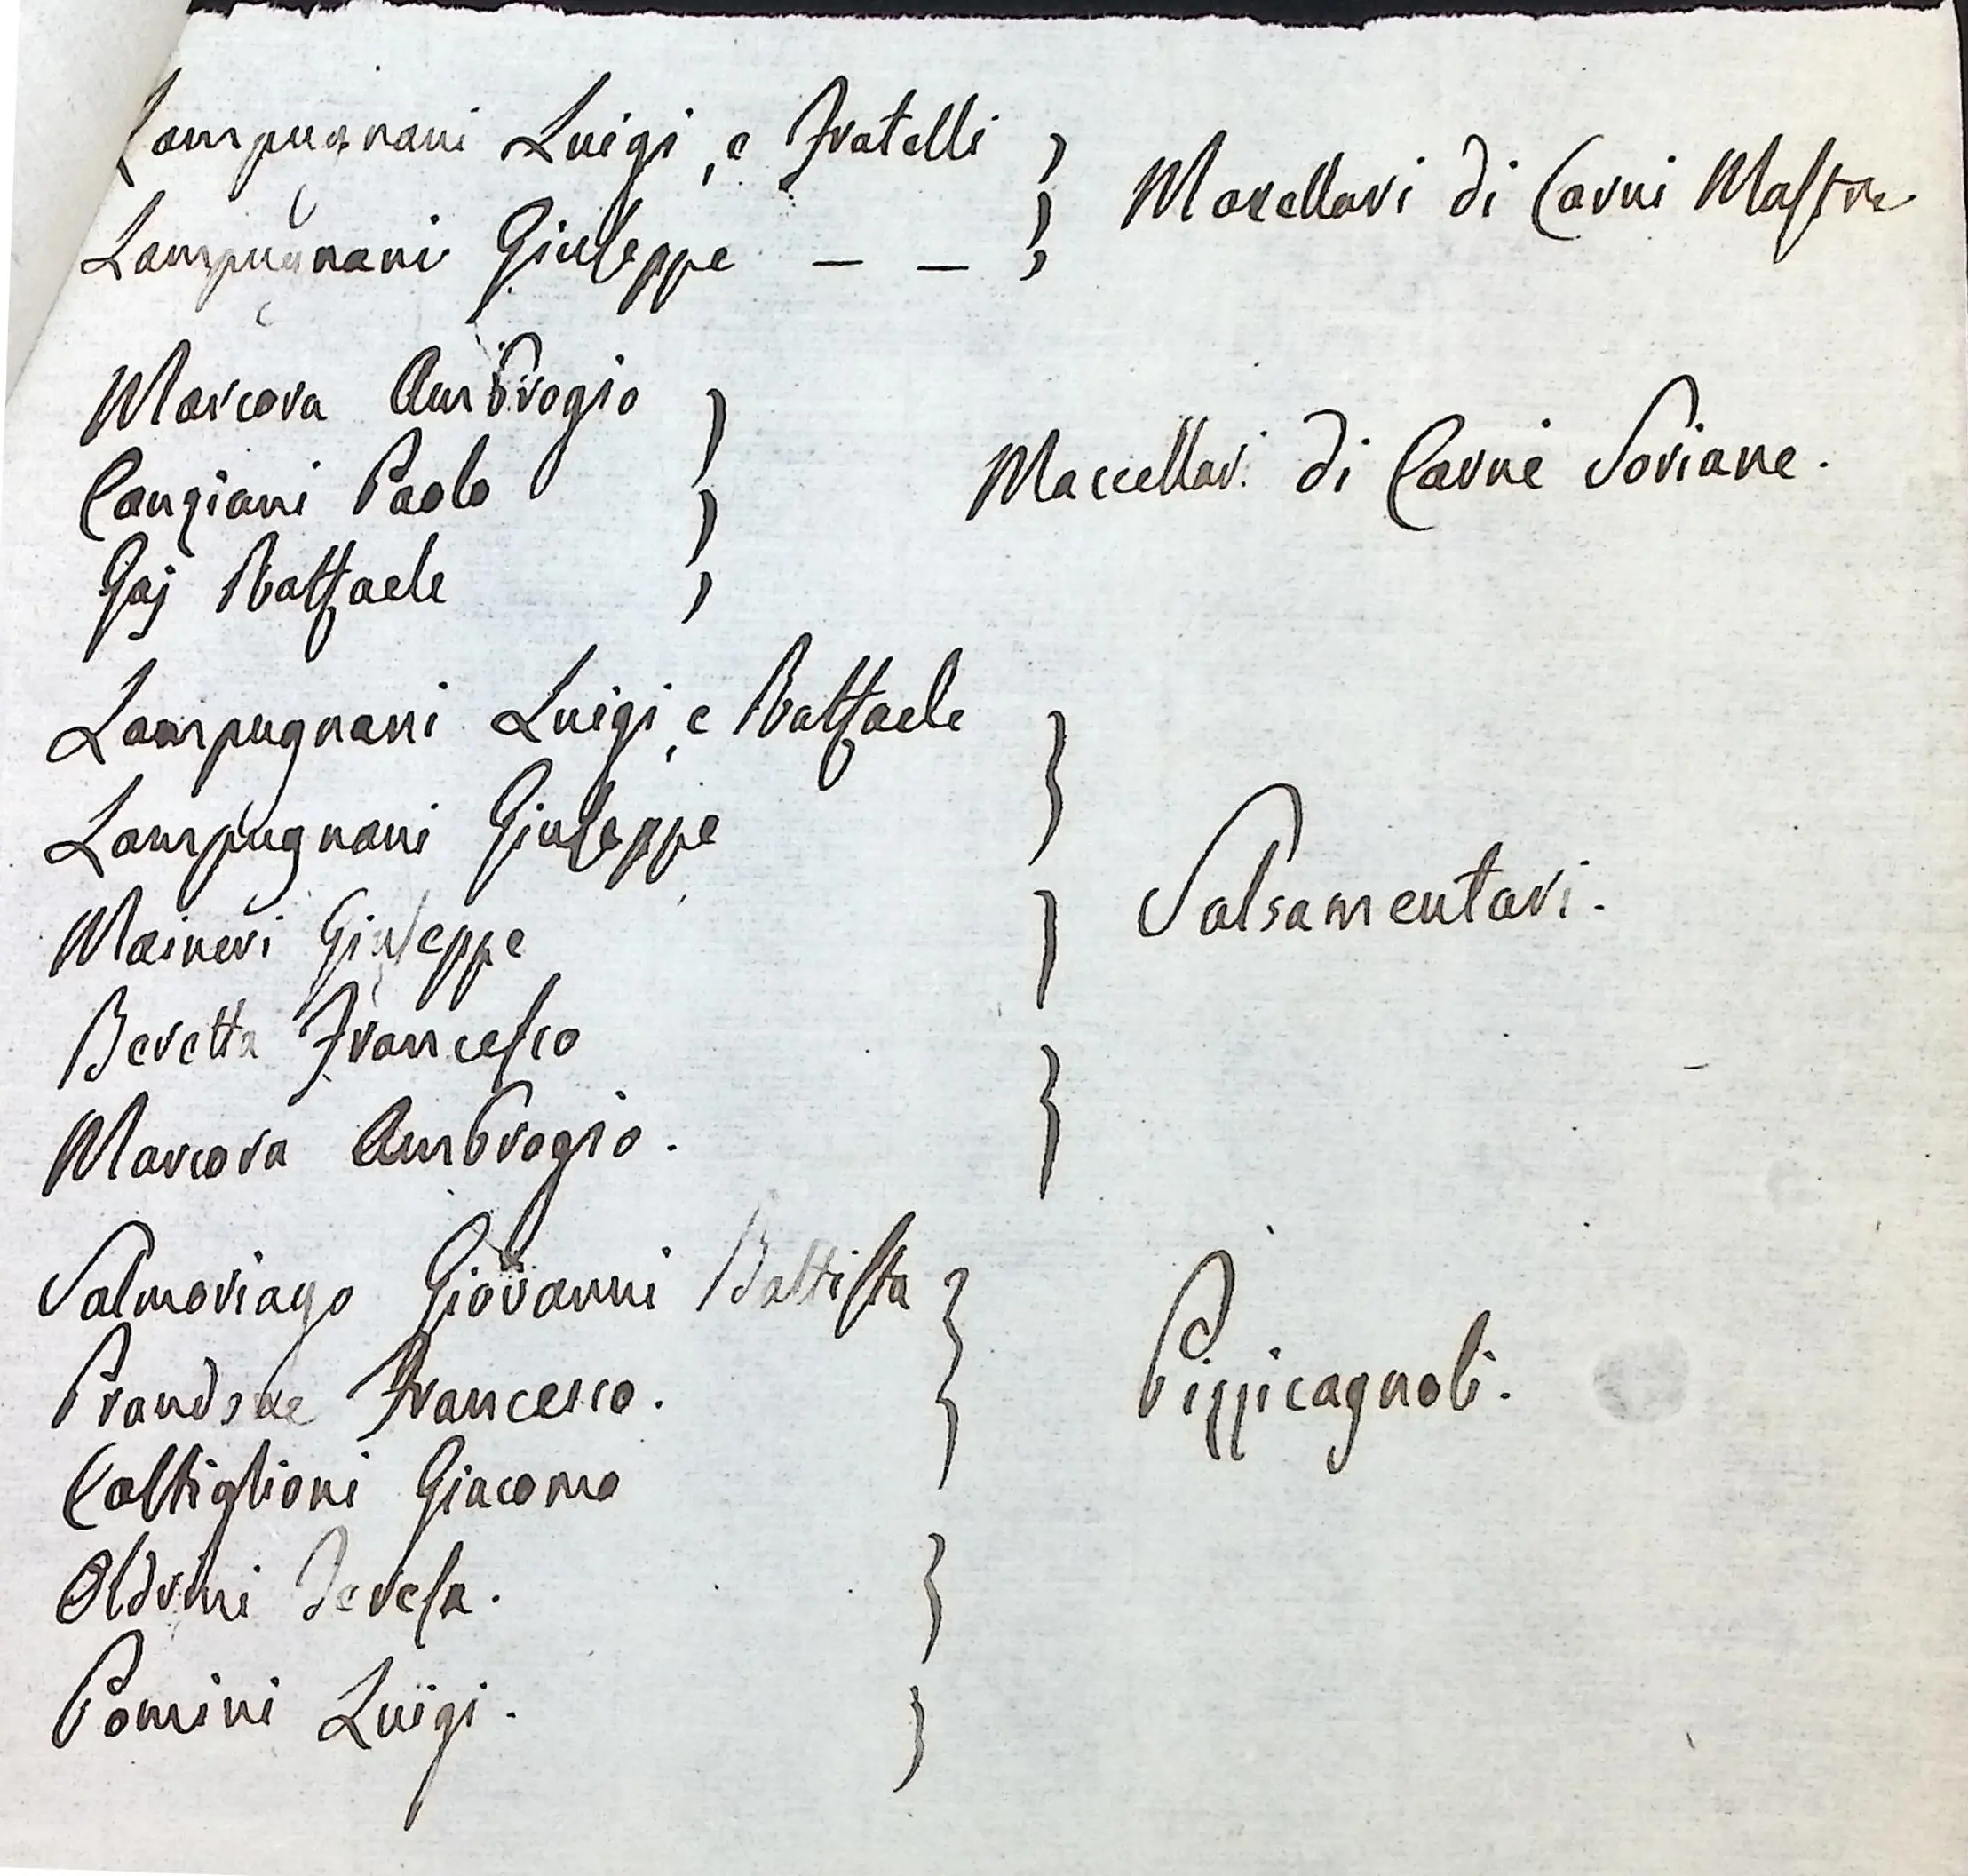 Lampugnani Luigi, e Fratelli
Lampugnani Giuseppe — —
Macellari di Carni Mastre
Marcora Ambrogio
Cangiani Paolo
Gaj Raffaele
Maccellari di Carne Soriane.
Lampugnani Luigi, e Raffaele
Lampugnani Giuseppe
Maineri Giuseppe
Beretta Francesco
Marcora Ambrogio.
Salsamentari.
Salmoriago Giovanni Battista
Francesco.
Castiglioni Giacomo
Oldrini Teresa.
Pomini Luigi.
Pizzicagnoli.